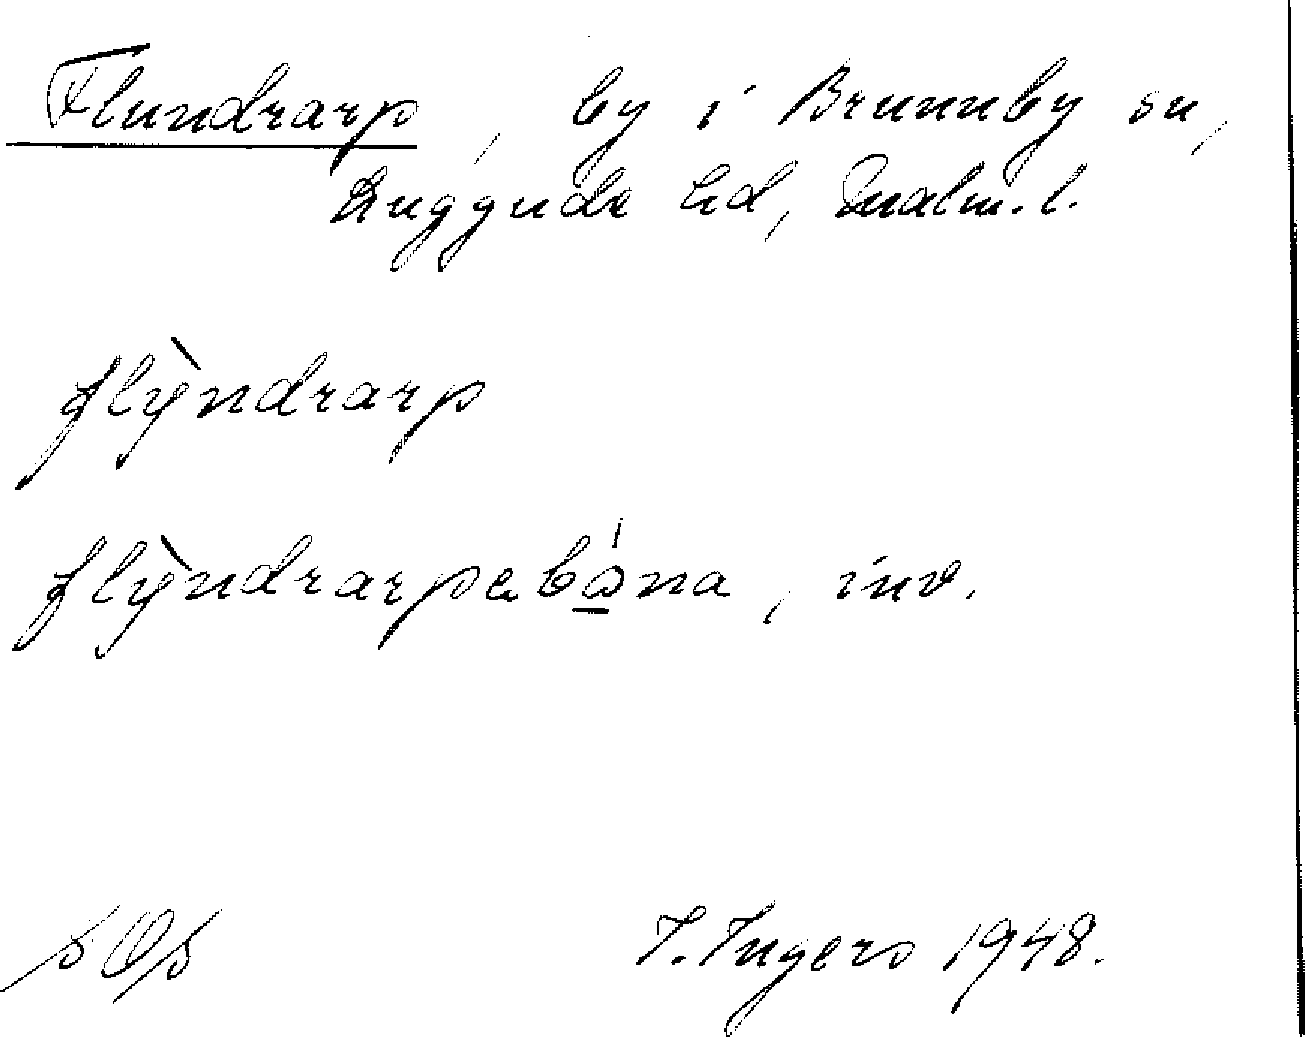 Flundrarp, by i Brunnby sn,
Luggude hd, Malm. l.
flỳndrarp
flỳndrarpabóna, inv.
SOS I. Ingers 1948.